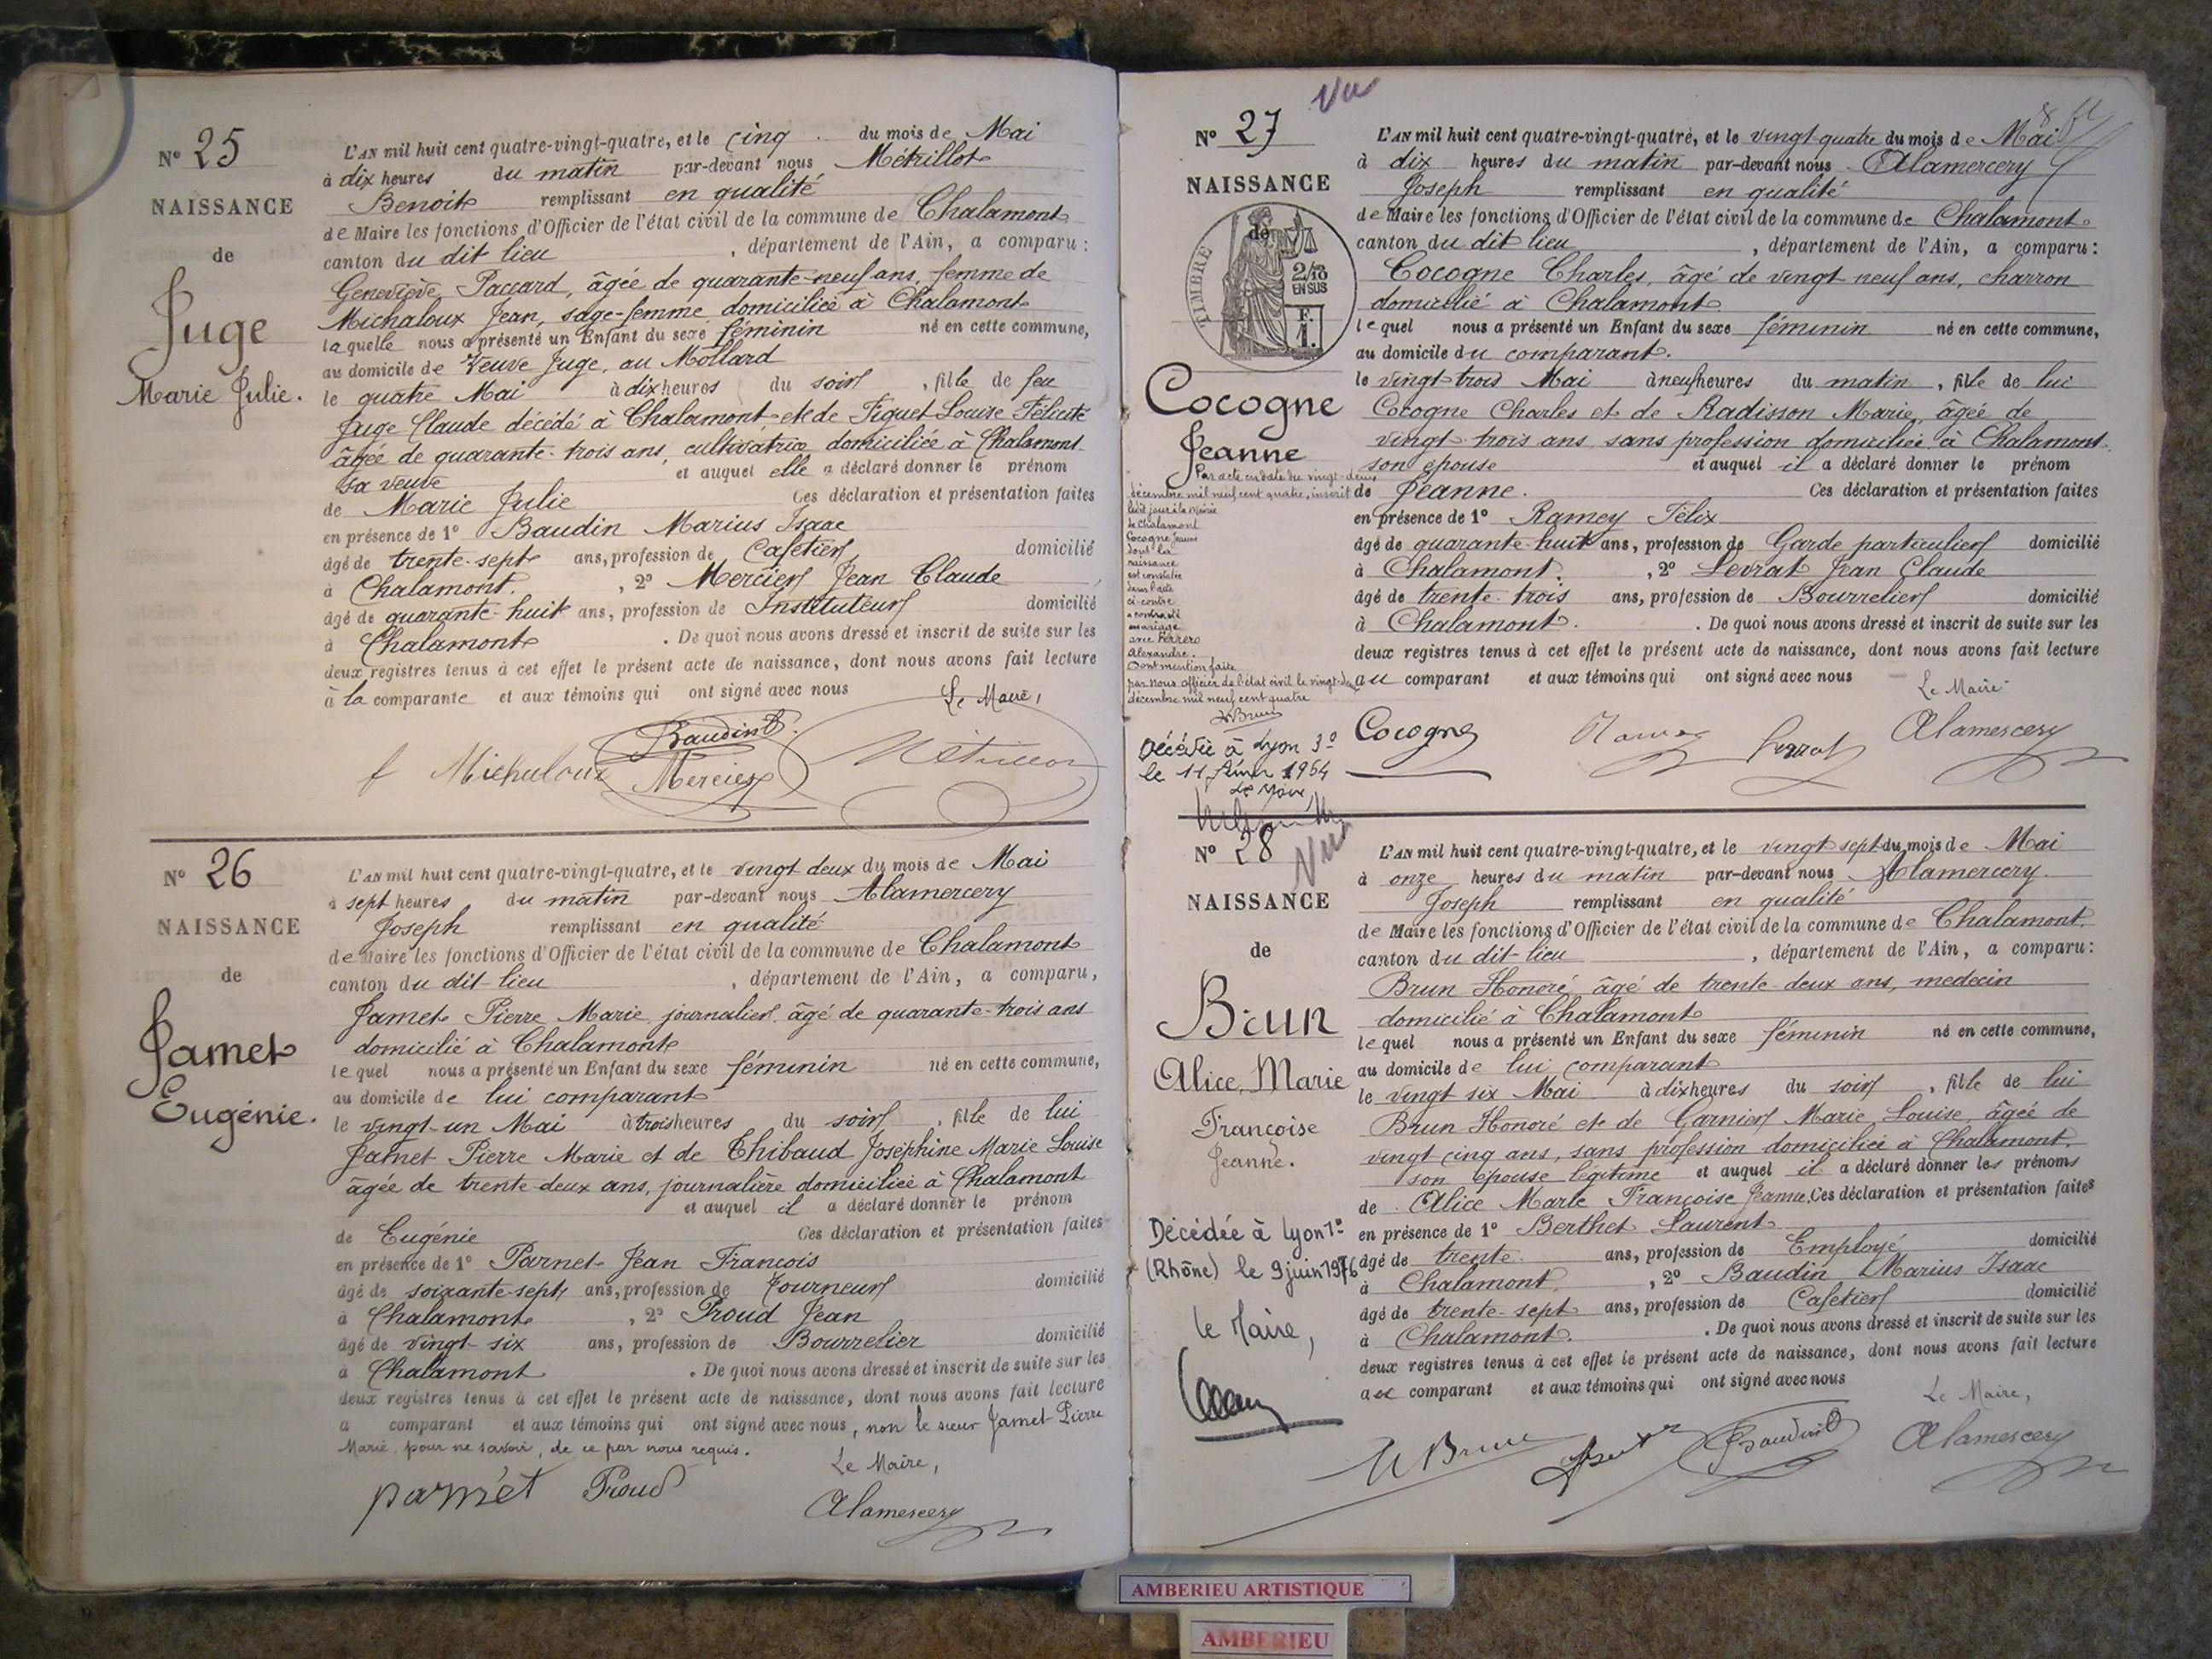 N° 25
NAISSANCE
de
Juge
Marie Julie.
L'AN mil huit cent quatre-vingt-quatre, et le cinq du mois de Mai
à dix heures du matin par-devant nous Métrillot
Benoit remplissant en qualité
de Maire les fonctions d'Officier de l'état civil de la commune de Chalamont
canton du dit lieu, département de l'Ain, a comparu :
Geneviève Paccard, âgée de quarante-neuf ans, femme de
Michaloux Jean, sage-femme domiciliée à Chalamont
laquelle nous a présenté un Enfant du sexe féminin né en cette commune,
au domicile de Veuve Juge, au Mollard
le quatre Mai à dix heures du soir, fille de feu
Juge Claude décédé à Chalamont et de Figuet Louise Félicité
âgée de quarante-trois ans, cultivatrice domiciliée à Chalamont
sa veuve et auquel elle a déclaré donner le prénom
de Marie Julie Ces déclaration et présentation faites
en présence de 1° Baudin Marius Isaac
âgé de trente-sept ans, profession de Cafetier domicilié
à Chalamont., 2° Mercier Jean Claude
âgé de quarante-huit ans, profession de Instituteur domicilié
à Chalamont. De quoi nous avons dressé et inscrit de suite sur les
deux registres tenus à cet effet le présent acte de naissance, dont nous avons fait lecture
à la comparante et aux témoins qui ont signé avec nous
Le Maire,
Baudin
f Michaloux Mercier Métrillot
N° 26
NAISSANCE
de
Jamet
Eugénie.
L'AN mil huit cent quatre-vingt-quatre, et le vingt deux du mois de Mai
à sept heures du matin par-devant nous Alamercery
Joseph remplissant en qualité
de Maire les fonctions d'Officier de l'état civil de la commune de Chalamont
canton du dit-lieu, département de l'Ain, a comparu,
Jamet Pierre Marie journalier âgé de quarante-trois ans
domicilié à Chalamont
lequel nous a présenté un Enfant du sexe féminin né en cette commune,
au domicile de lui comparant
le vingt-un Mai à trois heures du soir, fille de lui
Jamet Pierre Marie et de Thibaud Joséphine Marie Louise
âgée de trente-deux ans, journalière domiciliée à Chalamont
et auquel il a déclaré donner le prénom
de Eugénie Ces déclaration et présentation faites
en présence de 1° Parnet Jean François
âgé de soixante-sept ans, profession de Tourneur domicilié
à Chalamont, 2° Proud Jean
âgé de vingt-six ans, profession de Bourrelier domicilié
à Chalamont. De quoi nous avons dressé et inscrit de suite sur les
deux registres tenus à cet effet le présent acte de naissance, dont nous avons fait lecture
a comparant et aux témoins qui ont signé avec nous, non le sieur Jamet Pierre
Marie, pour ne savoir, de ce par nous requis.
Le Maire,
parnet Proud
Alamercery
Vu
N° 27
NAISSANCE
de
TIMBRE
2/10 EN SUS
F. 1.
Cocogne
Jeanne
Par acte en date du vingt-deux
décembre mil neuf cent quatre, inscrit
ledit jour à la Mairie
de Chalamont
Cocogne Jeanne
dont la
naissance
est constatée
dans l'acte
ci-contre
a contracté
mariage
avec Ferrero
Alexandre.
Dont mention faite
par Nous officier de l'état civil le vingt-deux
décembre mil neuf cent quatre
H Brun
Décédée à Lyon 3°
le 11 1964
Le Maire,
L'AN mil huit cent quatre-vingt-quatre, et le vingt-quatre du mois de Mai
à dix heures du matin par-devant nous Alamercery
Joseph remplissant en qualité
de Maire les fonctions d'Officier de l'état civil de la commune de Chalamont
canton du dit lieu, département de l'Ain, a comparu :
Cocogne Charles, âgé de vingt neuf ans, charron
domicilié à Chalamont
lequel nous a présenté un Enfant du sexe féminin né en cette commune,
au domicile du comparant.
le vingt-trois Mai à neuf heures du matin, fille de lui
Cocogne Charles et de Radisson Marie, âgée de
vingt-trois ans, sans profession domiciliée à Chalamont.
son épouse et auquel il a déclaré donner le prénom
de Jeanne. Ces déclaration et présentation faites
en présence de 1° Ramey Félix
âgé de quarante-huit ans, profession de Garde particulier domicilié
à Chalamont., 2° Levrat Jean Claude
âgé de trente-trois ans, profession de Bourrelier domicilié
à Chalamont. De quoi nous avons dressé et inscrit de suite sur les
deux registres tenus à cet effet le présent acte de naissance, dont nous avons fait lecture
au comparant et aux témoins qui ont signé avec nous
Le Maire
Cocogne Ramey Levrat Alamercery
N° 28
Vu
NAISSANCE
de
Brun
Alice, Marie
Françoise
Jeanne.
Décédée à Lyon 1°
(Rhône) le 9 juin 1976
Le Maire,
L'AN mil huit cent quatre-vingt-quatre, et le vingt sept du mois de Mai
à onze heures du matin par-devant nous Alamercery
Joseph remplissant en qualité
de Maire les fonctions d'Officier de l'état civil de la commune de Chalamont.
canton du dit-lieu, département de l'Ain, a comparu :
Brun Honoré âgé de trente-deux ans, medecin
domicilié à Chalamont
lequel nous a présenté un Enfant du sexe féminin né en cette commune,
au domicile de lui comparant
le vingt six Mai à dix heures du soir, fille de lui
Brun Honoré et de Garnier Marie Louise, âgée de
vingt cinq ans, sans profession domiciliée à Chalamont.
son épouse légitime et auquel il a déclaré donner les prénoms
de Alice Marie Françoise Jeanne. Ces déclaration et présentation faites
en présence de 1° Berthet Laurent
âgé de trente ans, profession de Employé domicilié
à Chalamont, 2° Baudin Marius Isaac
âgé de trente-sept ans, profession de Cafetier domicilié
à Chalamont. De quoi nous avons dressé et inscrit de suite sur les
deux registres tenus à cet effet le présent acte de naissance, dont nous avons fait lecture
au comparant et aux témoins qui ont signé avec nous
Le Maire,
H Brun Baudin Alamercery
AMBERIEU ARTISTIQUE
AMBERIEU